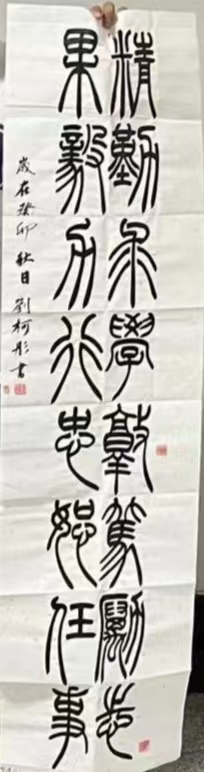 精勤求學敦篤勵志
果毅力行忠恕任事
歲在癸卯秋日劉柯彤書